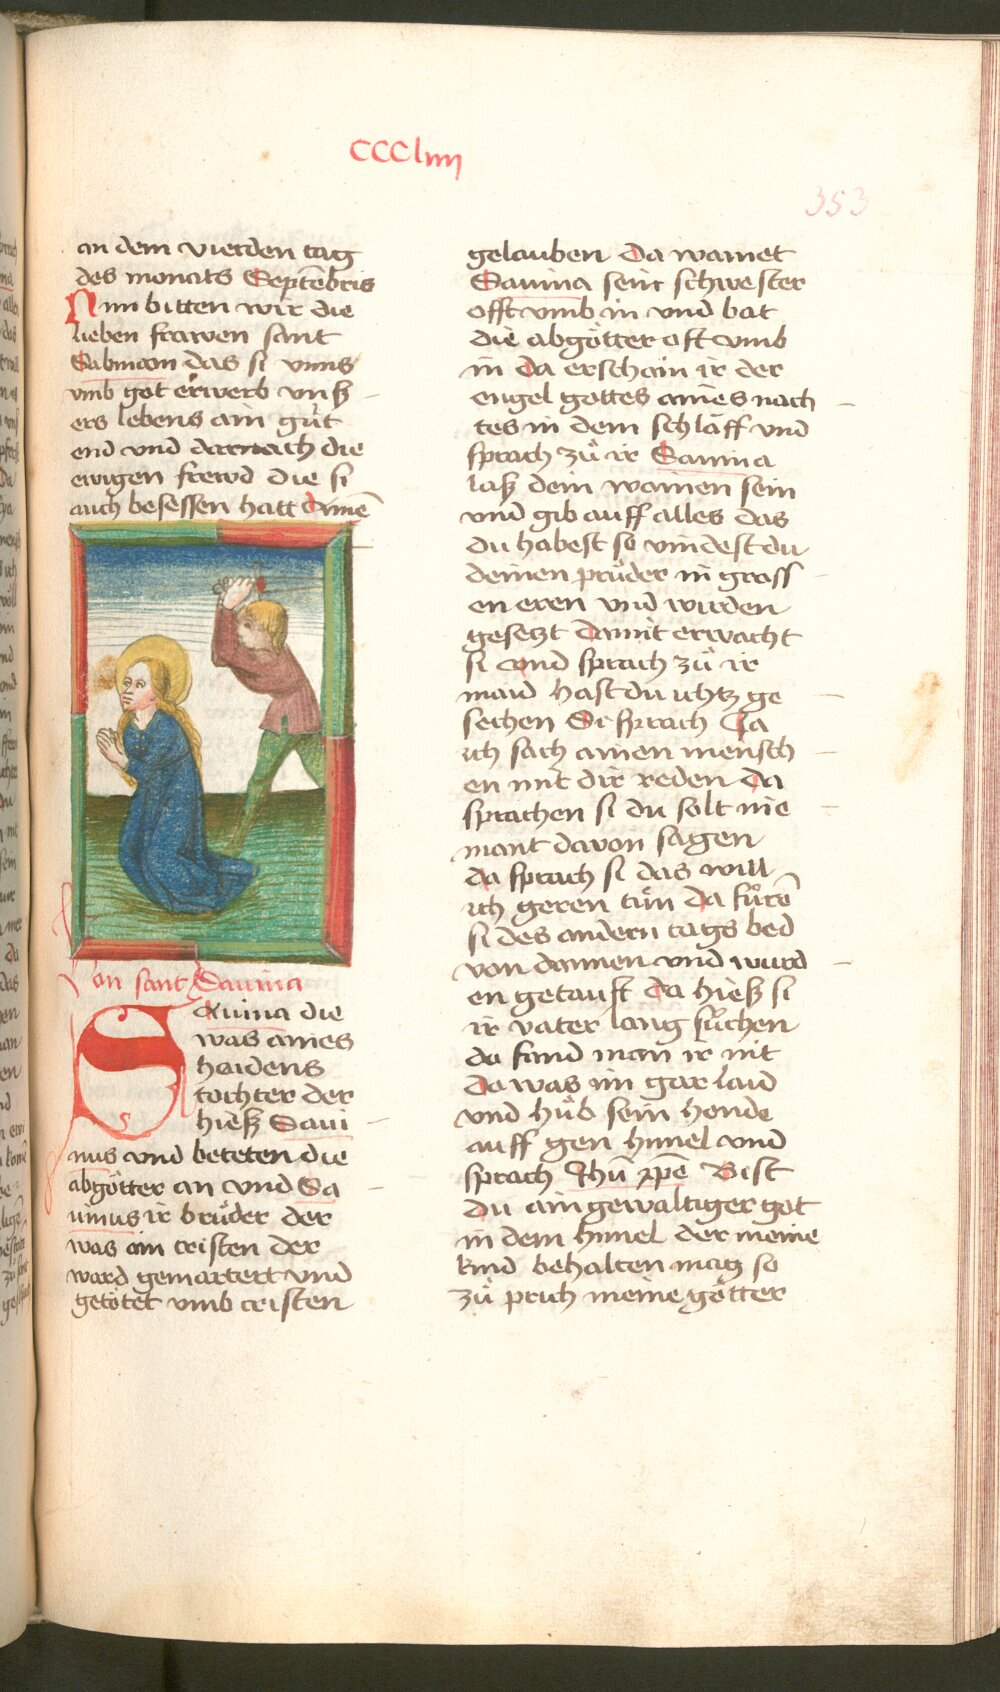 CCCLiiii
353
an dem vierden tag
des monats Septēbris
Nun bitten wir die
lieben frawen sant
Sabinam das si vnns
vmb got erwerb vnß
ers lebens ain gůt
end vnd darnach die
ewigen frewd die si
auch besessen hatt Amē
Von sant Sauina
SAuina die
was aines
haidens
tochter der
hieß Saui
nus vnd beteten die
abgötter an vnd Sa
uinus ir brůder der
was ain cristen der
ward gemartert vnd
getötet vmb cristen
gelauben Da wainet
Sauina sein schwester
offt vmb in vnd bat
die abgötter oft vmb
in Da erschain ir der
engel gottes aines nach
tes in dem schläff vnd
sprach zů ir Sauina
laß dein wainen sein
vnd gib auff alles das
du habest so vindest du
deinen průder in gross
en eren vnd wirden
gesetzt Damit erwacht
si vnd sprach zů ir
maid hast du ichtz ge
sechen Si sprach Ja
ich sach ainen mensch
en mit dir reden Da
sprachen si du solt nie
mant davon sagen
da sprach si das will
ich geren tůn Da fůrē
si des andern tags bed
von dannen vnd wurd
en getauft Da hieß si
ir vater lang sůchen
da fand man ir nit
Da was im gar laid
vnd hůb sein hende
auff gen himel vnd
sprach Jhū xp̄e Bist
du ain gewaltiger got
in dem himel der meine
kind behalten mag so
zů prich meine götter